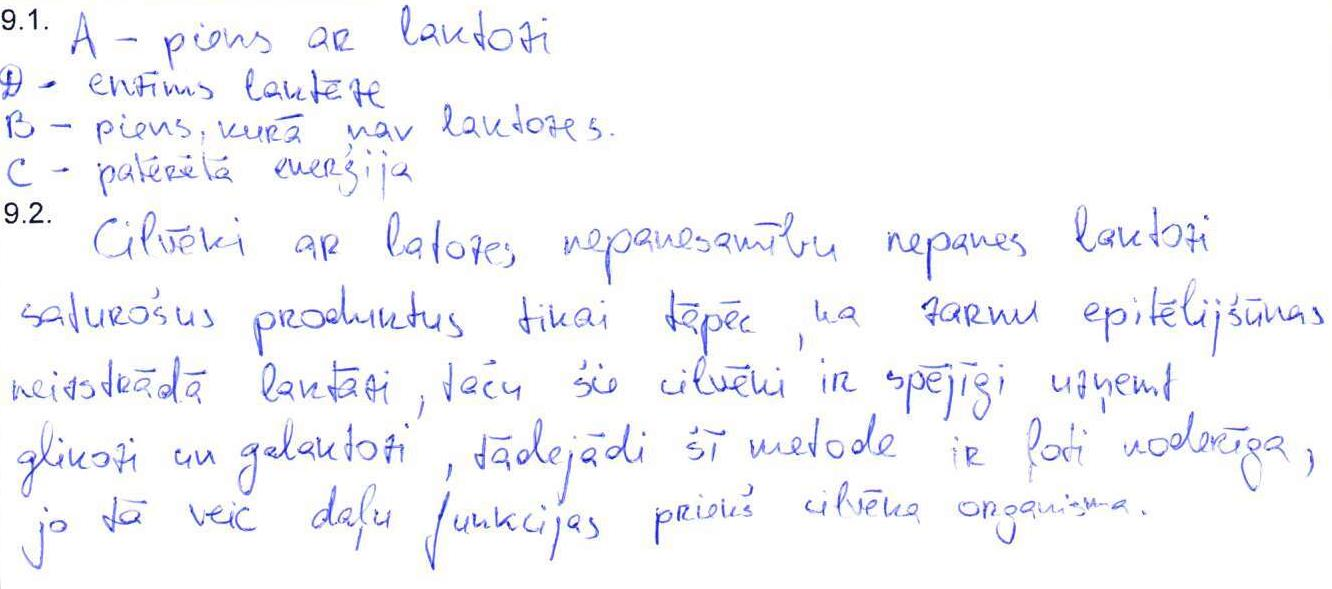 9.1. A - piens ar laktozi
D - enzīms laktēze
B - piens, kurā nav laktozes.
C - patērētā enerģija
9.2. Cilvēki ar latozes nepanesamību nepanes laktozi
saturošus produktus tikai tāpēc, ka zarnu epitēlijšūnas
neizstrādā laktāzi, taču šie cilvēki ir spējīgi uzņemt
glikozi un galaktozi, tādejādi šī metode ir ļoti noderīga,
jo tā veic daļu funkcijas priekš cilvēka organisma.